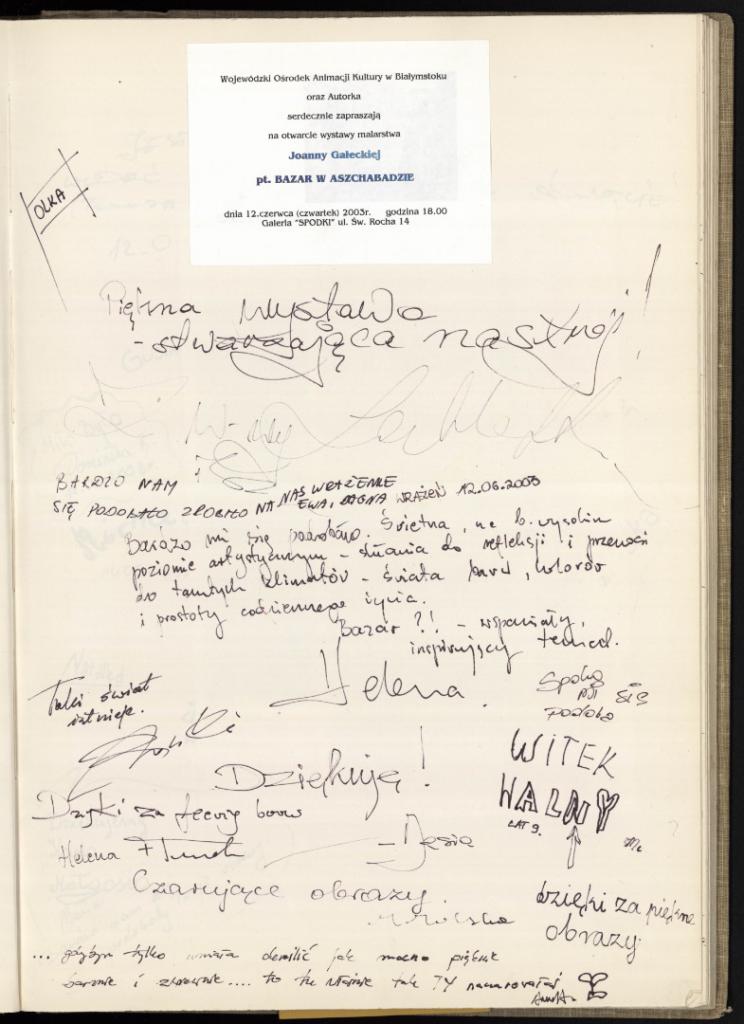 Wojewódzki Ośrodek Animacji Kultury w Białymstoku
oraz Autorka
serdecznie zapraszają
na otwarcie wystawy malarstwa
Joanny Gałeckiej
pt. BAZAR W ASZCHABADZIE
dnia 12.czerwca (czwartek) 2003r. godzina 18.00
Galeria "SPODKI" ul. Św. Rocha 14
OLKA
Piękna wystawa
- stwarzająca nastrój!
BARDZO NAM
SIĘ PODOBAŁO ZROBIŁO NA NAS WRAŻENIE
EWA, DAGNA WRAŻEŃ 12.06.2003
Bardzo mi się podobało. Świetna, na b. wysokim
poziomie artystycznym - skłania do refleksji i przenosi
do tamtych klimatów - świata barw, kolorów
i prostoty codziennego życia.
Bazar ?! - wspaniały,
inspirujący temat.
Helena
Taki świat
istnieje.
Spoko
mi się
podoba
Dziękuję!
WITEK
WALNY
LAT 9.
Dzięki za feerię barw
Helena
- Basia
Czarujące obrazy.
dzięki za piękne
obrazy
... gdybym tylko umiała określić jak mocno piękne
barwnie i .... to tu właśnie tak TY namalowałaś